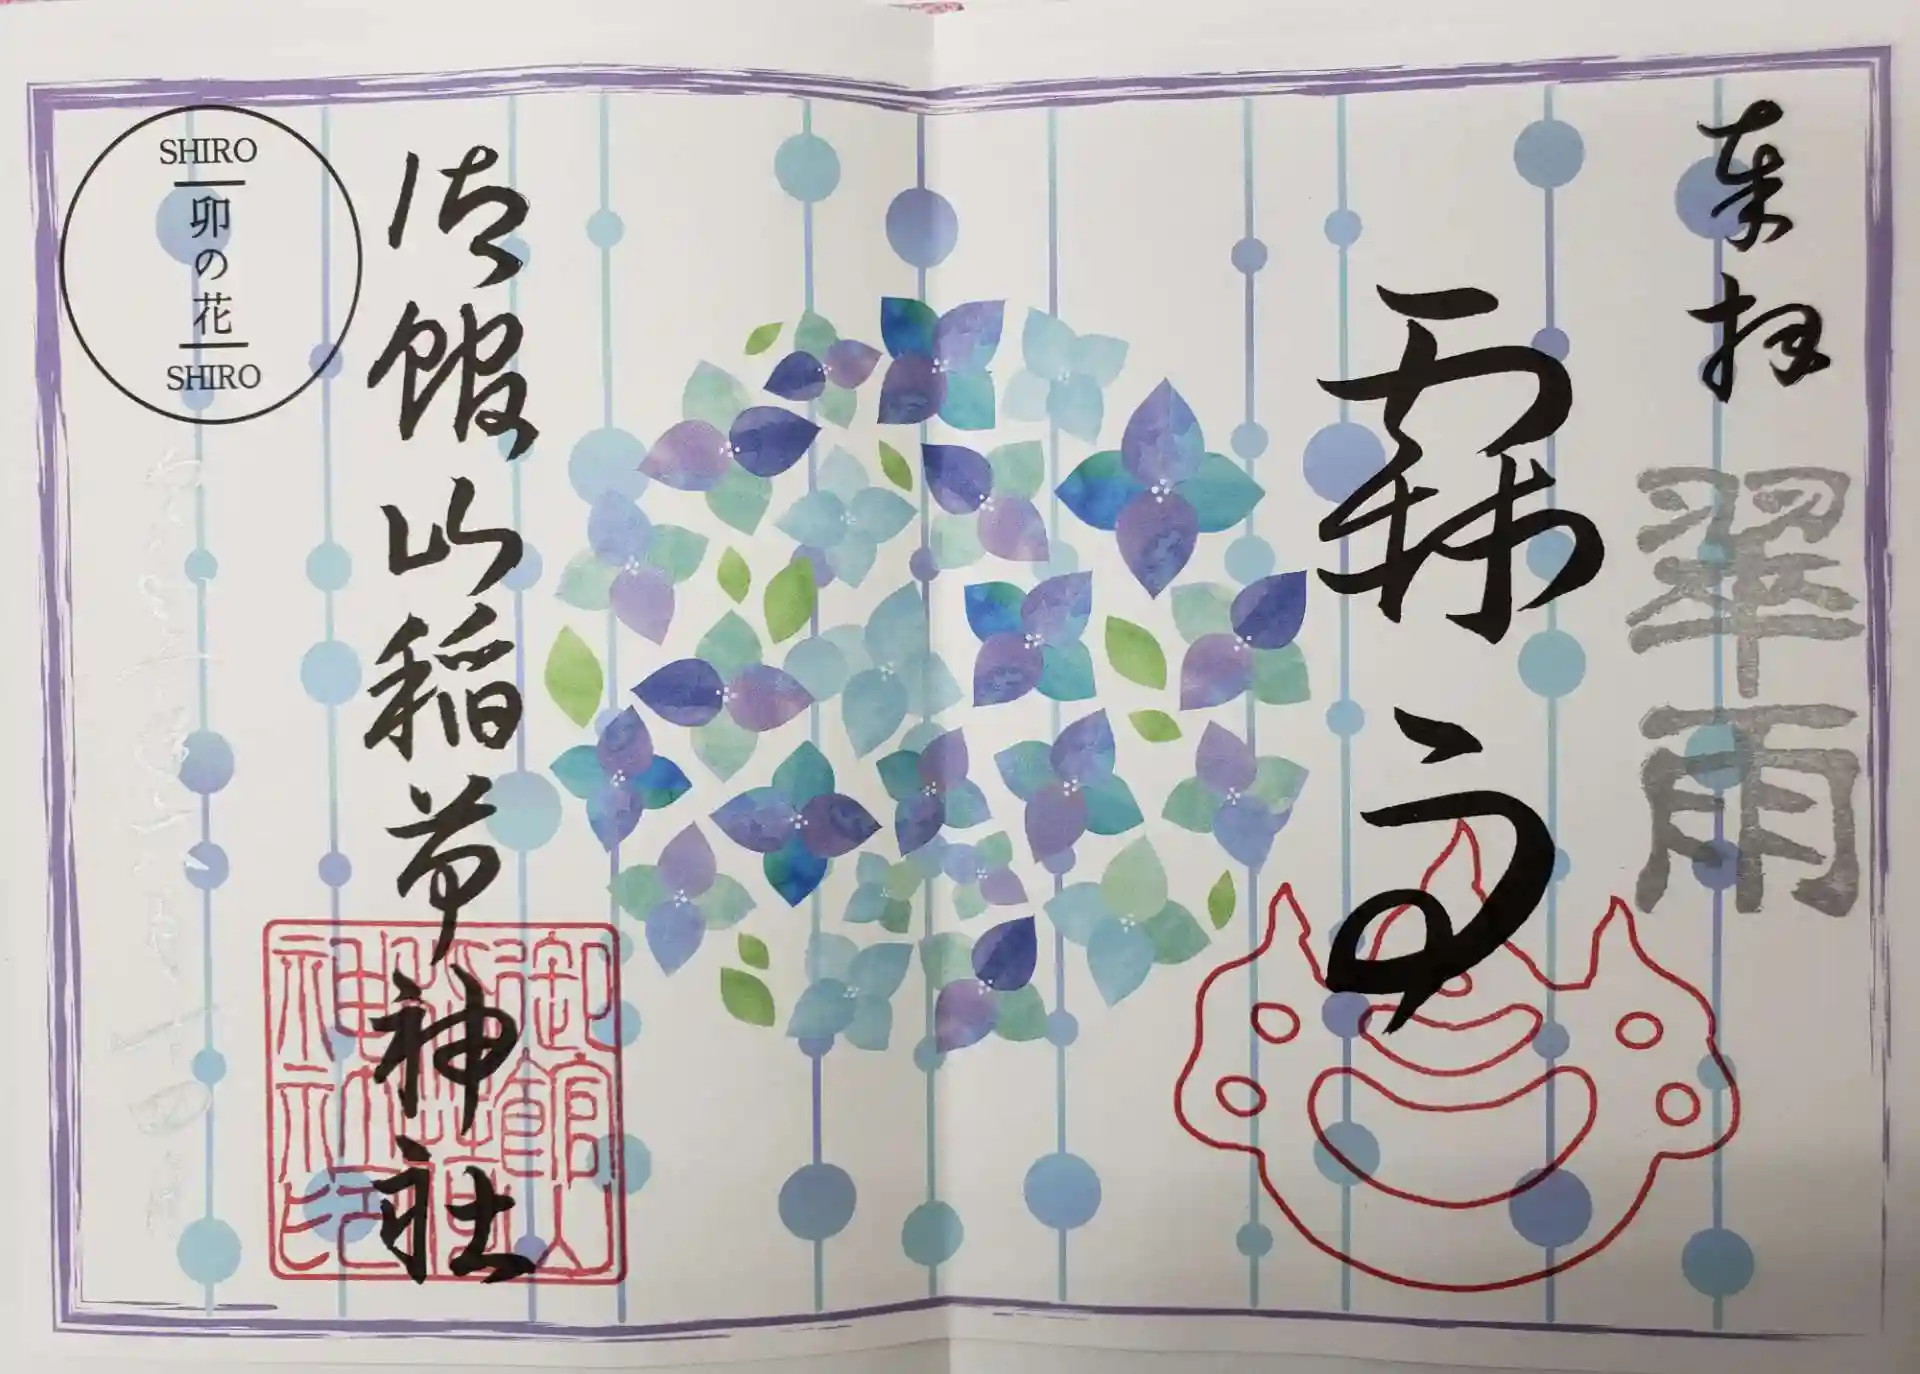 奉拝
翠雨
霖雨
御館山稲荷神社
御館山
神社印
SHIRO
卯の花
SHIRO